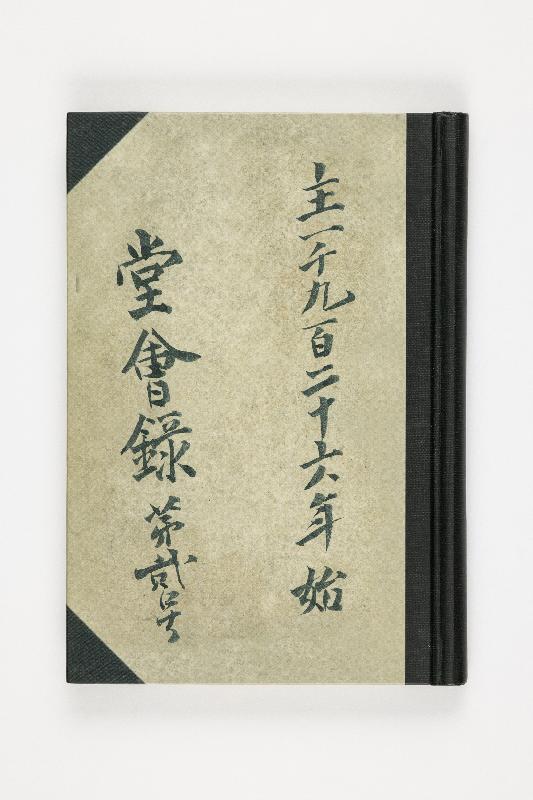 主一千九百二十六年 始
堂會錄 第貳号